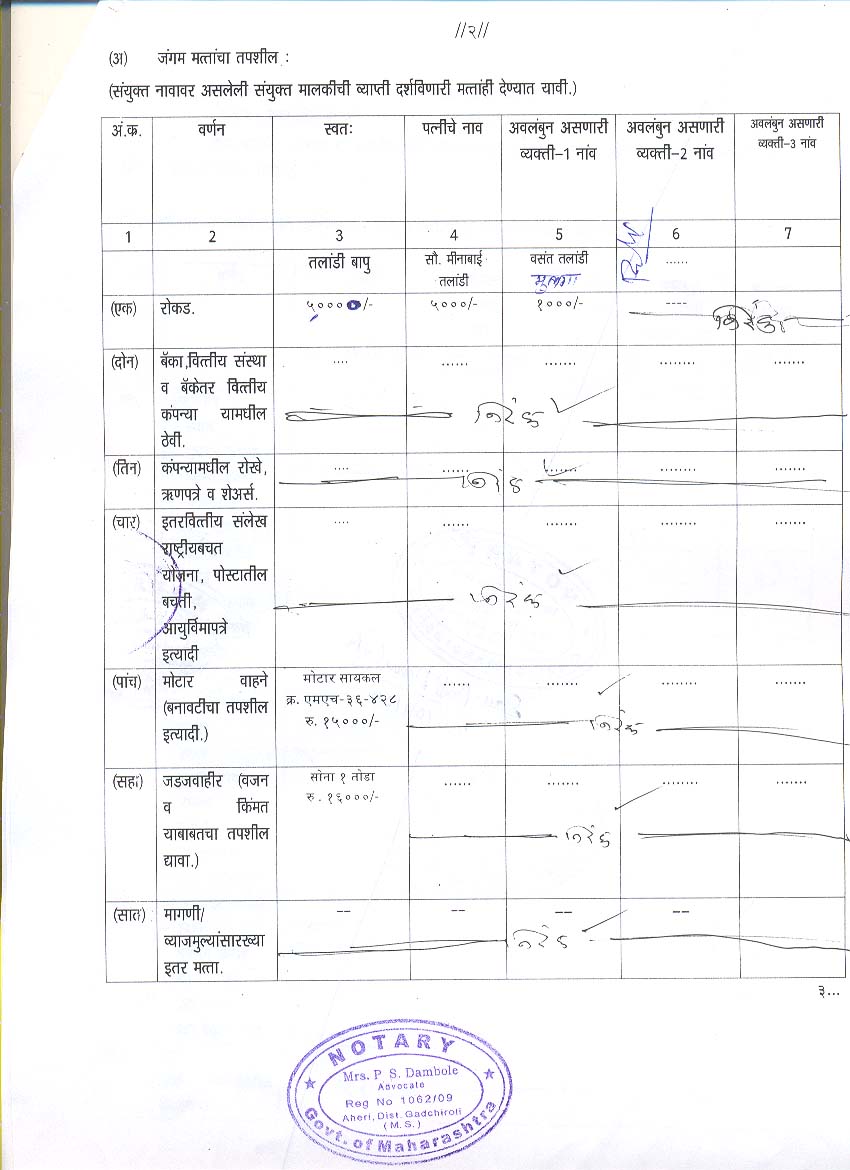 //२//
(अ) जंगम मत्तांचा तपशील :
(संयुक्त नावावर असलेली संयुक्त मालकीची व्याप्ती दर्शविणारी मत्तांही देण्यात यावी.)
अं.क. वर्णन स्वतः पत्नीचे नाव अवलंबुन असणारी अवलंबुन असणारी अवलंबुन असणारी
व्यक्ती-1 नांव व्यक्ती-2 नांव व्यक्ती-3 नांव
1 2 3 4 5 6 7
तलांडी बापु सौ. मीनाबाई वसंत तलांडी ......
तलांडी मुलगा
(एक) रोकड. ५००००/- ५०००/- १०००/- ----
निरंक
(दोन) बॅका,वित्तीय संस्था .... ...... ....... ........ .......
व बॅकेतर वित्तीय
कंपन्या यामधील निरंक
ठेवी.
(तिन) कंपन्यामधील रोखे, .... ...... ....... ........ .......
ऋणपत्रे व शेअर्स. निरंक
(चार) इतरवित्तीय संलेख .... ...... ....... ........ .......
राष्ट्रीयबचत
योजना, पोस्टातील
बचती, निरंक
आयुर्विमापत्रे
इत्यादी
(पांच) मोटार वाहने मोटार सायकल ...... ....... ........ .......
(बनावटीचा तपशील क्र. एमएच-३६-४२८
इत्यादी.) रु. १५०००/- निरंक
(सहा) जडजवाहीर (वजन सोना १ तोडा ...... ....... ........ .......
व किंमत रु. १६०००/-
याबाबतचा तपशील निरंक
द्यावा.)
(सात) मागणी/ -- -- -- --
व्याजमुल्यांसारख्या निरंक
इतर मत्ता.
३...
NOTARY
Mrs. P. S. Dambole
Advocate
Reg No 1062/09
Aheri, Dist. Gadchiroli
(M.S.)
Govt. of Maharashtra